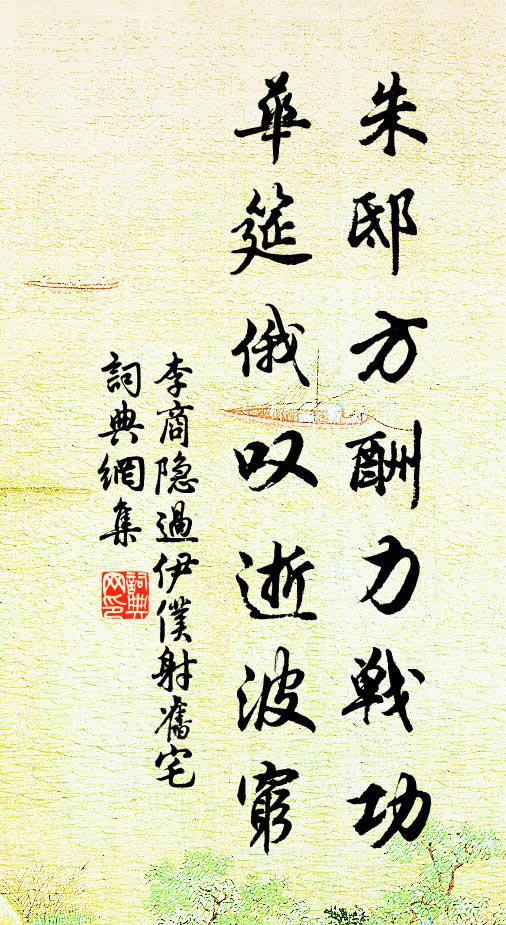 朱邸方酬力戰功
華筵俄叹逝波窮
李商隐過伊僕射舊宅
詞典網集
詞典网印